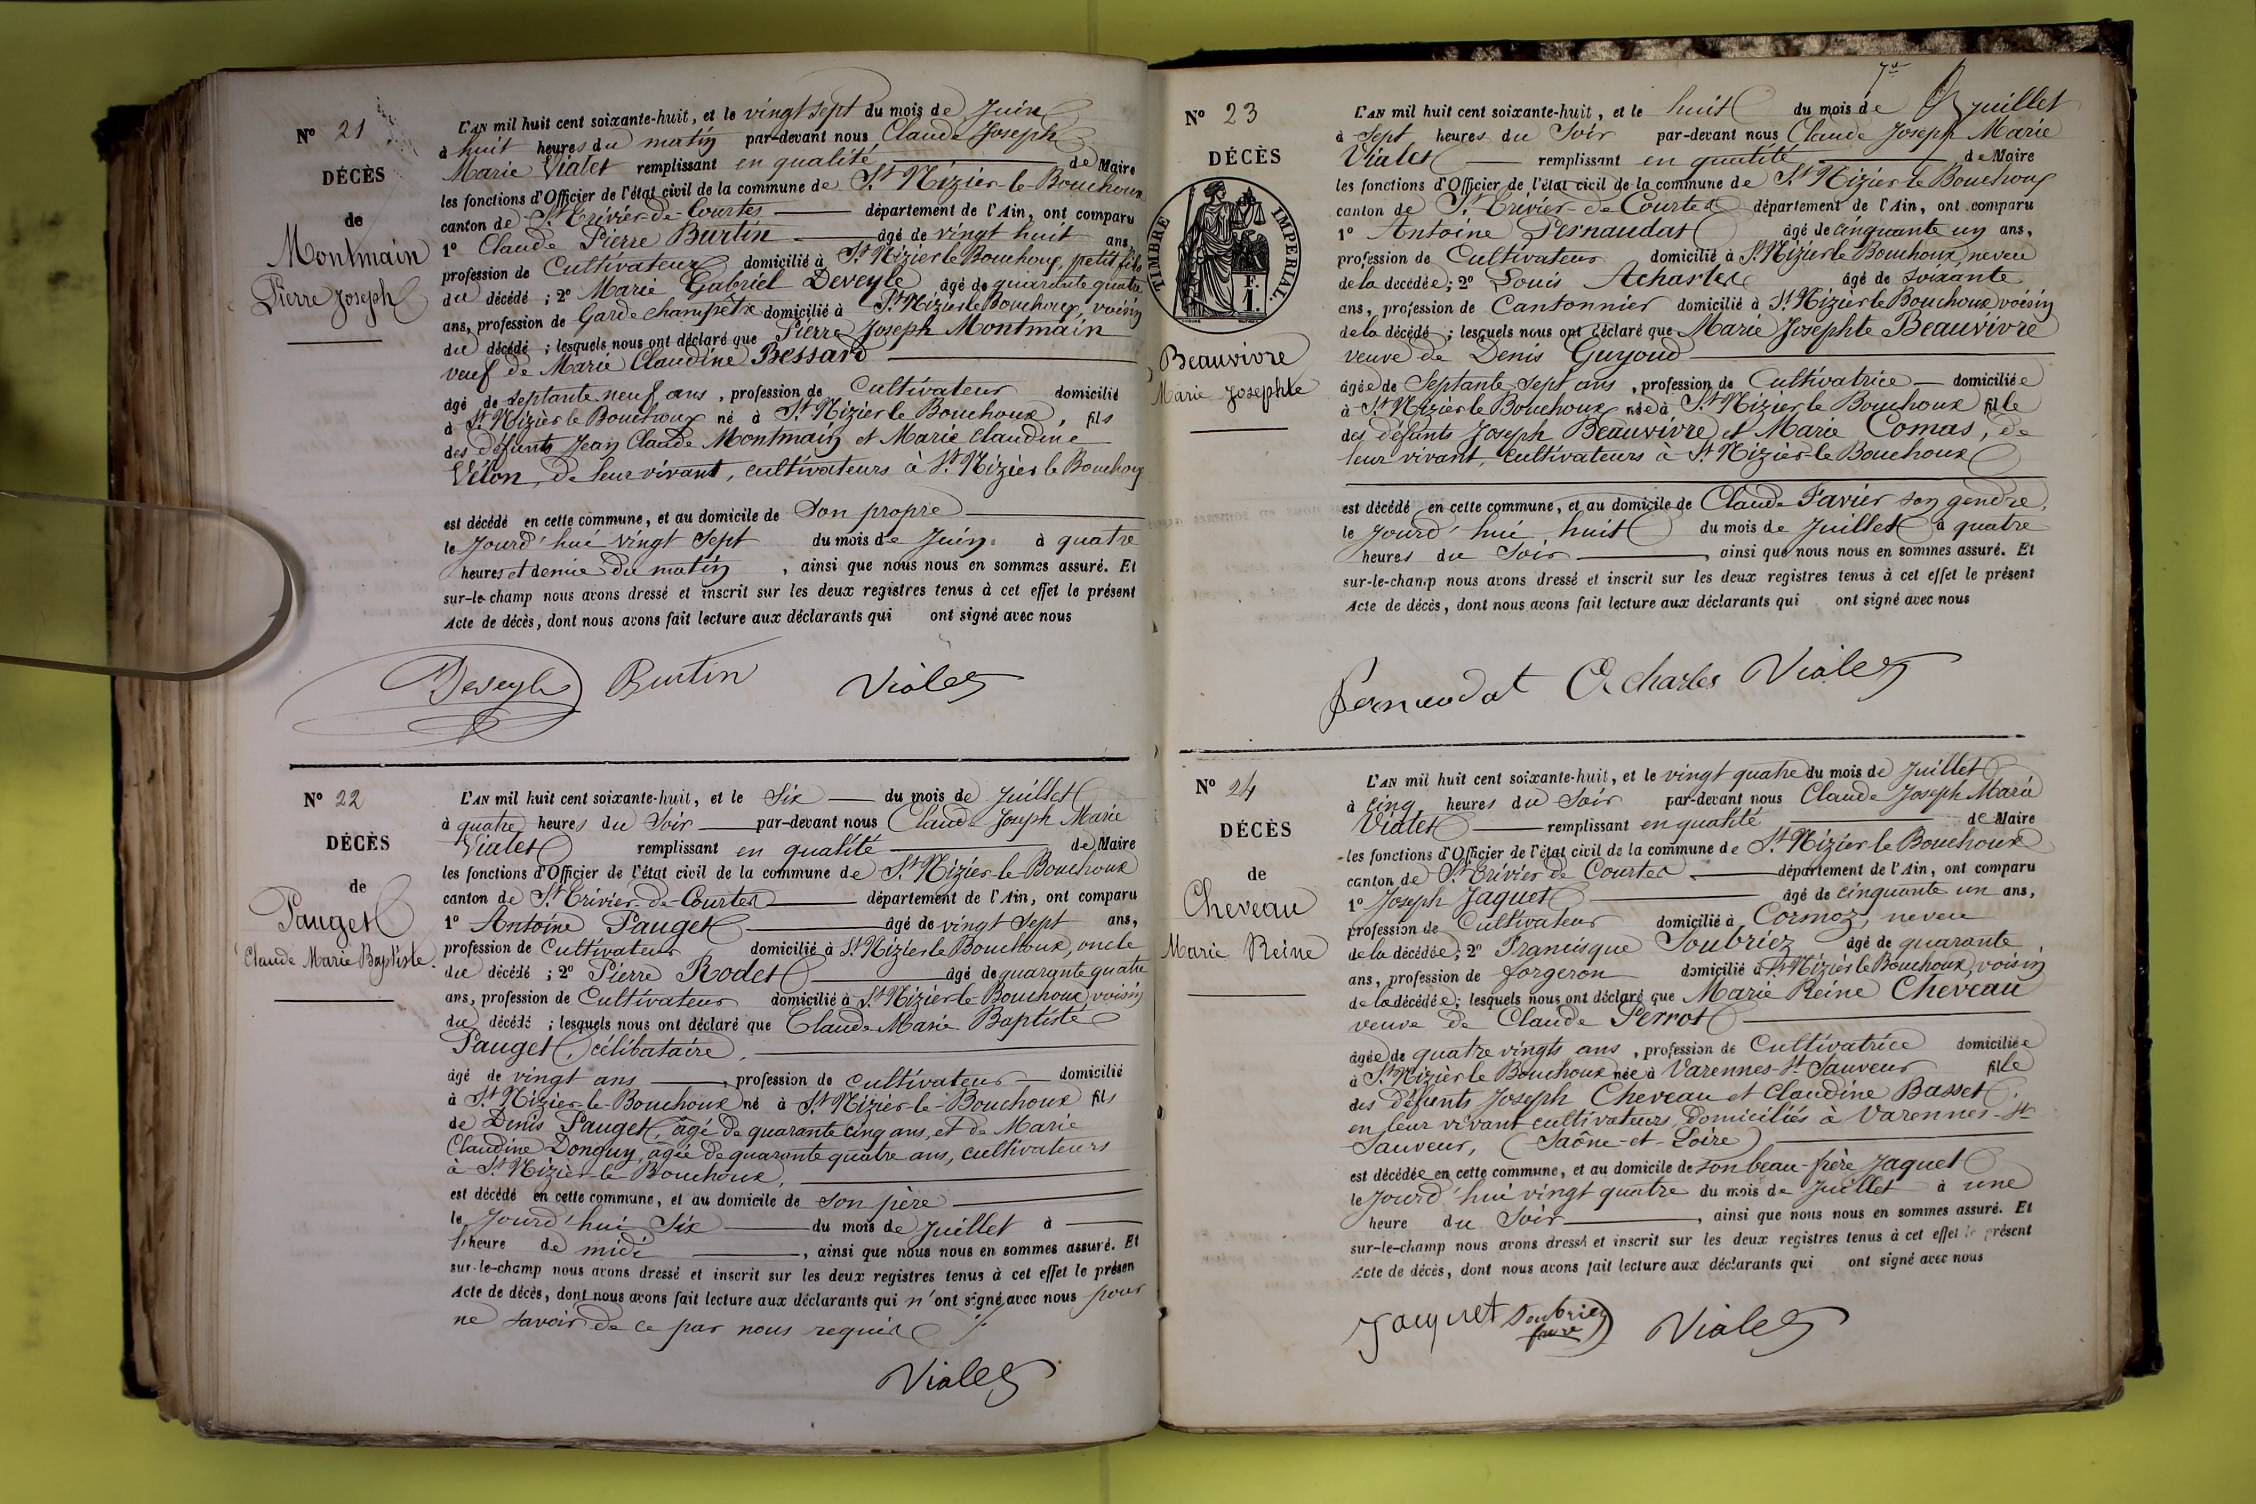 N° 21
DÉCÈS
de
Montmain
Pierre Joseph
L'AN mil huit cent soixante-huit, et le vingt sept du mois de Juin
à huit heures du matin par-devant nous Claude Joseph
Marie Vialet remplissant en qualité de Maire
les fonctions d'Officier de l'état civil de la commune de St Nizier-le-Bouchoux
canton de St Trivier-de-Courtes département de l'Ain, ont comparu
1° Claude Pierre Burtin âgé de vingt huit ans,
profession de Cultivateur domicilié à St Nizier le Bouchoux, petit fils
du décédé ; 2° Marie Gabriel Deveyle âgé de quarante quatre
ans, profession de Garde champêtre domicilié à St Nizier le Bouchoux, voisin
du décédé ; lesquels nous ont déclaré que Pierre Joseph Montmain
veuf de Marie Claudine Bessard
âgé de septante neuf ans, profession de Cultivateur domicilié
à St Nizier le Bouchoux né à St Nizier le Bouchoux, fils
des défunts Jean Claude Montmain et Marie Claudine
Vélon, de leur vivant, cultivateurs à St Nizier le Bouchoux
est décédé en cette commune, et au domicile de Son propre
le Jourd'hui vingt Sept du mois de Juin à quatre
heures et demie du matin, ainsi que nous nous en sommes assuré. Et
sur-le-champ nous avons dressé et inscrit sur les deux registres tenus à cet effet le présent
Acte de décès, dont nous avons fait lecture aux déclarants qui ont signé avec nous
Deveyle Burtin Vialet
N° 22
DÉCÈS
de
Pauget
Claude Marie Baptiste
L'AN mil huit cent soixante-huit, et le Six du mois de Juillet
à quatre heures du Soir par-devant nous Claude Joseph Marie
Vialet remplissant en qualité de Maire
les fonctions d'Officier de l'état civil de la commune de St Nizier-le-Bouchoux
canton de St Trivier-de-Courtes département de l'Ain, ont comparu
1° Antoine Pauget âgé de vingt Sept ans,
profession de Cultivateur domicilié à St Nizier le Bouchoux, oncle
du décédé ; 2° Pierre Rodet âgé de quarante quatre
ans, profession de Cultivateur domicilié à St Nizier-le-Bouchoux voisin
du décédé ; lesquels nous ont déclaré que Claude Marie Baptiste
Pauget, célibataire,
âgé de vingt ans, profession de cultivateur domicilié
à St Nizier-le-Bouchoux né à St Nizier-le-Bouchoux fils
de Denis Pauget, âgé de quarante cinq ans, et de Marie
Claudine Donguy, âgée de quarante quatre ans, cultivateurs
à St Nizier-le-Bouchoux,
est décédé en cette commune, et au domicile de Son père
le Jourd'hui Six du mois de Juillet à
l'heure de midi, ainsi que nous nous en sommes assuré. Et
sur-le-champ nous avons dressé et inscrit sur les deux registres tenus à cet effet le présen
Acte de décès, dont nous avons fait lecture aux déclarants qui n'ont signé avec nous pour
ne savoir de ce par nous requis
Vialet
N° 23
DÉCÈS
TIMBRE IMPERIAL.
F. 1.
Beauvivre
Marie Josephte
L'AN mil huit cent soixante-huit, et le huit du mois de Juillet
à Sept heures du Soir par-devant nous Claude Joseph Marie
Vialet remplissant en qualité de Maire
les fonctions d'Officier de l'état civil de la commune de St Nizier le Bouchoux
canton de St Trivier-de Courtes département de l'Ain, ont comparu
1° Antoine Pernaudat âgé de cinquante un ans,
profession de Cultivateur domicilié à St Nizier le Bouchoux, neveu
de la décédée ; 2° Louis Acharles âgé de soixante
ans, profession de Cantonnier domicilié à St Nizier le Bouchoux, voisin
de la décédé ; lesquels nous ont déclaré que Marie Josephte Beauvivre
veuve de Denis Guyoud
âgée de Septante Sept ans, profession de Cultivatrice domiciliée
à St Nizier le Bouchoux née à St Nizier le Bouchoux fille
des défunts Joseph Beauvivre et Marie Comas, de
leur vivant, cultivateurs à St Nizier-le Bouchoux
est décédé en cette commune, et au domicile de Claude Favier son gendre,
le Jourd'hui huit du mois de Juillet à quatre
heures du Soir, ainsi que nous nous en sommes assuré. Et
sur-le-champ nous avons dressé et inscrit sur les deux registres tenus à cet effet le présent
Acte de décès, dont nous avons fait lecture aux déclarants qui ont signé avec nous
Pernaudat Acharles Vialet
N° 24
DÉCÈS
de
Cheveau
Marie Reine
L'AN mil huit cent soixante-huit, et le vingt quatre du mois de Juillet
à cinq heures du Soir par-devant nous Claude Joseph Marie
Vialet remplissant en qualité de Maire
les fonctions d'Officier de l'état civil de la commune de St Nizier le Bouchoux
canton de St Trivier de Courtes département de l'Ain, ont comparu
1° Joseph Jaquet âgé de cinquante un ans,
profession de Cultivateur domicilié à Cormoz, neveu
de la décédée ; 2° Francisque Soubriez âgé de quarante
ans, profession de forgeron domicilié à St Nizier le Bouchoux, voisin
de la décédée ; lesquels nous ont déclaré que Marie Reine Cheveau
veuve de Claude Perrot
âgée de quatre vingts ans, profession de Cultivatrice domiciliée
à St Nizier le Bouchoux née à Varennes-St Sauveur fille
des défunts Joseph Cheveau et Claudine Basset,
en leur vivant cultivateurs domiciliés à Varennes-St
Sauveur, (Saône-et-Loire)
est décédée en cette commune, et au domicile de son beau-frère Jaquet
le Jourd'hui vingt quatre du mois de Juillet à une
heure du Soir, ainsi que nous nous en sommes assuré. Et
sur-le-champ nous avons dressé et inscrit sur les deux registres tenus à cet effet le présent
Acte de décès, dont nous avons fait lecture aux déclarants qui ont signé avec nous
Jacquet Soubriez Vialet